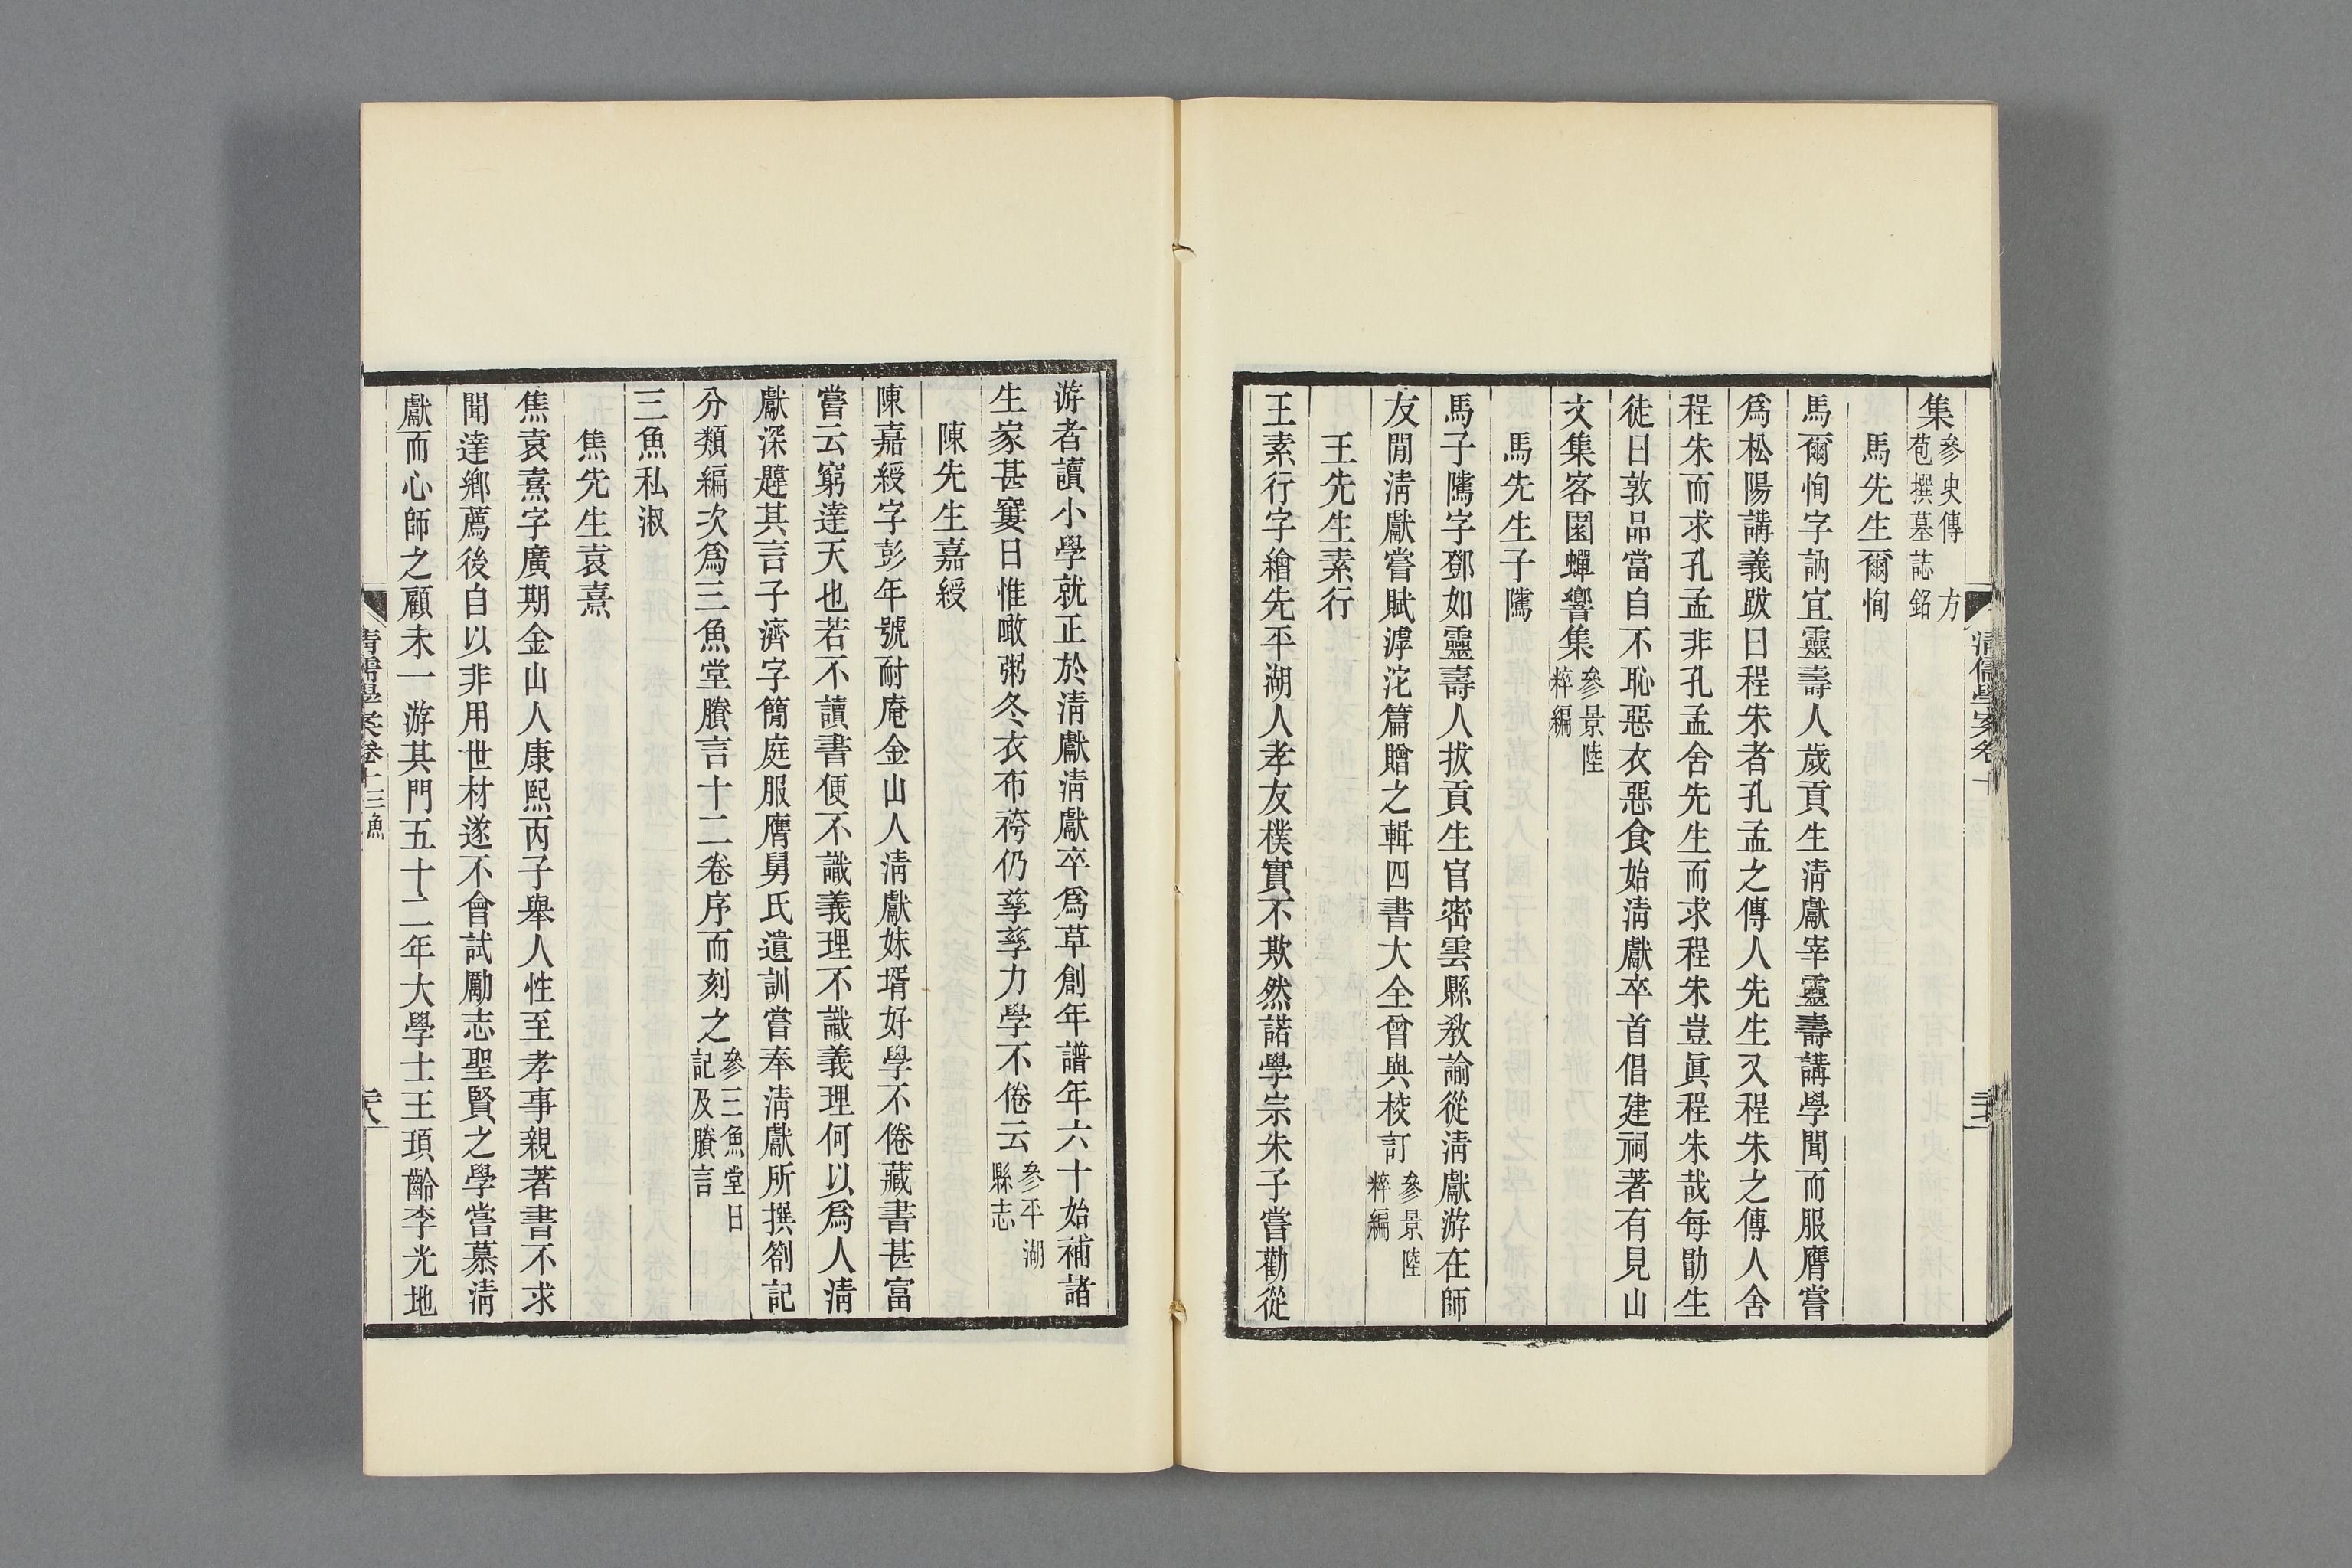 集參史傳方苞撰墓誌銘
馬先生爾恂
馬爾恂字訥宜靈壽人歲貢生淸獻宰靈壽講學聞而服膺嘗
爲松陽講義跋曰程朱者孔孟之傳人先生又程朱之傳人舍
程朱而求孔孟非孔孟舍先生而求程朱豈眞程朱哉每勖生
徒曰敦品當自不恥惡衣惡食始淸獻卒首倡建祠著有見山
文集客園蟬響集參景陸粹編
馬先生子騭
馬子騭字鄧如靈壽人拔貢生官密雲縣敎諭從淸獻游在師
友閒淸獻嘗賦滹沱篇贈之輯四書大全曾與校訂參景陸粹編
王先生素行
王素行字繪先平湖人孝友樸實不欺然諾學宗朱子嘗勸從
游者讀小學就正於淸獻淸獻卒爲草創年譜年六十始補諸
生家甚窶日惟噉粥冬衣布袴仍孳孳力學不倦云參平湖縣志
陳先生嘉綬
陳嘉綬字彭年號耐庵金山人淸獻妹壻好學不倦藏書甚富
嘗云窮達天也若不讀書便不識義理不識義理何以爲人淸
獻深韙其言子濟字簡庭服膺舅氏遺訓嘗奉淸獻所撰劄記
分類編次爲三魚堂賸言十二卷序而刻之參三魚堂日記及賸言
三魚私淑
焦先生袁熹
焦袁熹字廣期金山人康熙丙子舉人性至孝事親著書不求
聞達鄉薦後自以非用世材遂不會試勵志聖賢之學嘗慕淸
獻而心師之顧未一游其門五十二年大學士王頊齡李光地
淸儒學案卷十三魚